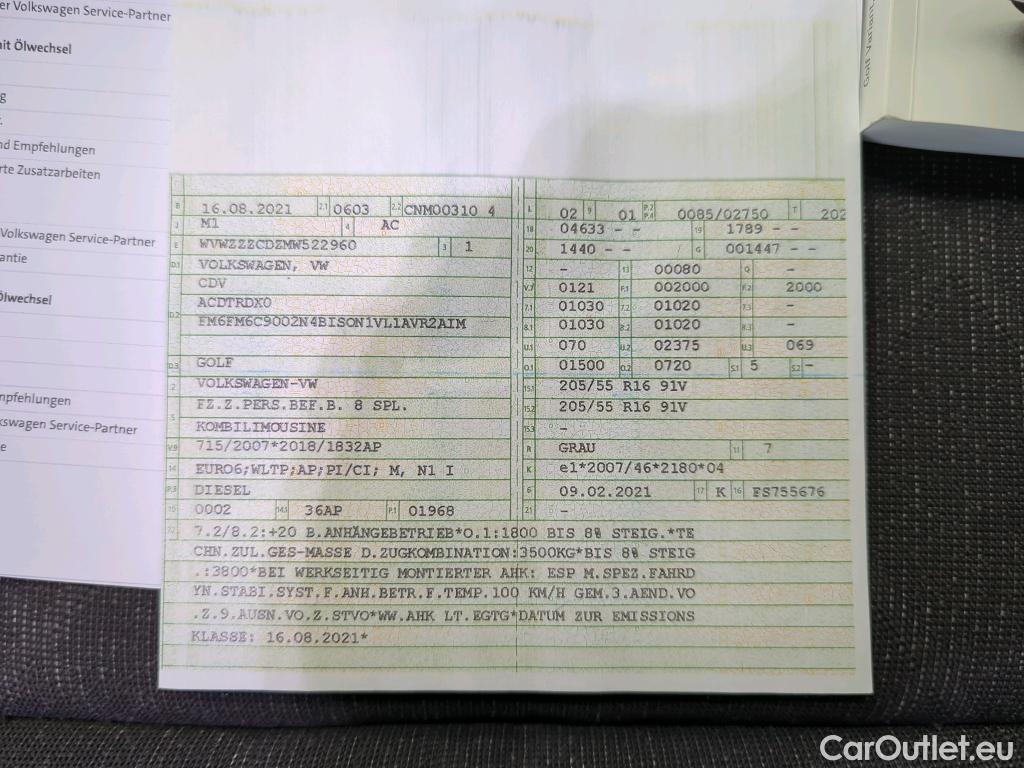 er Volkswagen Service-Partner
nit Ölwechsel
g
nd Empfehlungen
rte Zusatzarbeiten
Volkswagen Service-Partner
antie
Ölwechsel
mpfehlungen
kswagen Service-Partner
e
Golf Variant
B 16.08.2021 2.1 0603 2.2 CNM00310 4
J M1 4 AC
E WVWZZZCDZMW522960 3 1
D.1 VOLKSWAGEN, VW
CDV
ACDTRDX0
D.2 FM6FM6C9002N4BISON1VL1AVR2AIM
D.3 GOLF
2 VOLKSWAGEN-VW
FZ.Z.PERS.BEF.B. 8 SPL.
5 KOMBILIMOUSINE
V.9 715/2007*2018/1832AP
14 EURO6;WLTP;AP;PI/CI; M, N1 I
P.3 DIESEL
10 0002 14.1 36AP P.1 01968
L 02 9 01 P.2 P.4 0085/02750 T 202
18 04633 - - 19 1789 - -
20 1440 - - / G 001447 - -
12 - 13 00080 Q -
V.7 0121 F.1 002000 F.2 2000
7.1 01030 7.2 01020 7.3 -
8.1 01030 8.2 01020 8.3 -
U.1 070 U.2 02375 U.3 069
O.1 01500 O.2 0720 S.1 5 S.2 -
15.1 205/55 R16 91V
15.2 205/55 R16 91V
15.3 -
R GRAU 11 7
K e1*2007/46*2180*04
6 09.02.2021 17 K 16 FS755676
21 -
22 7.2/8.2:+20 B.ANHÄNGEBETRIEB*O.1:1800 BIS 8% STEIG.*TE
CHN.ZUL.GES-MASSE D.ZUGKOMBINATION:3500KG*BIS 8% STEIG
.:3800*BEI WERKSEITIG MONTIERTER AHK: ESP M.SPEZ.FAHRD
YN.STABI.SYST.F.ANH.BETR.F.TEMP.100 KM/H GEM.3.AEND.VO
.Z.9.AUSN.VO.Z.STVO*WW.AHK LT.EGTG*DATUM ZUR EMISSIONS
KLASSE: 16.08.2021*
CarOutlet.eu